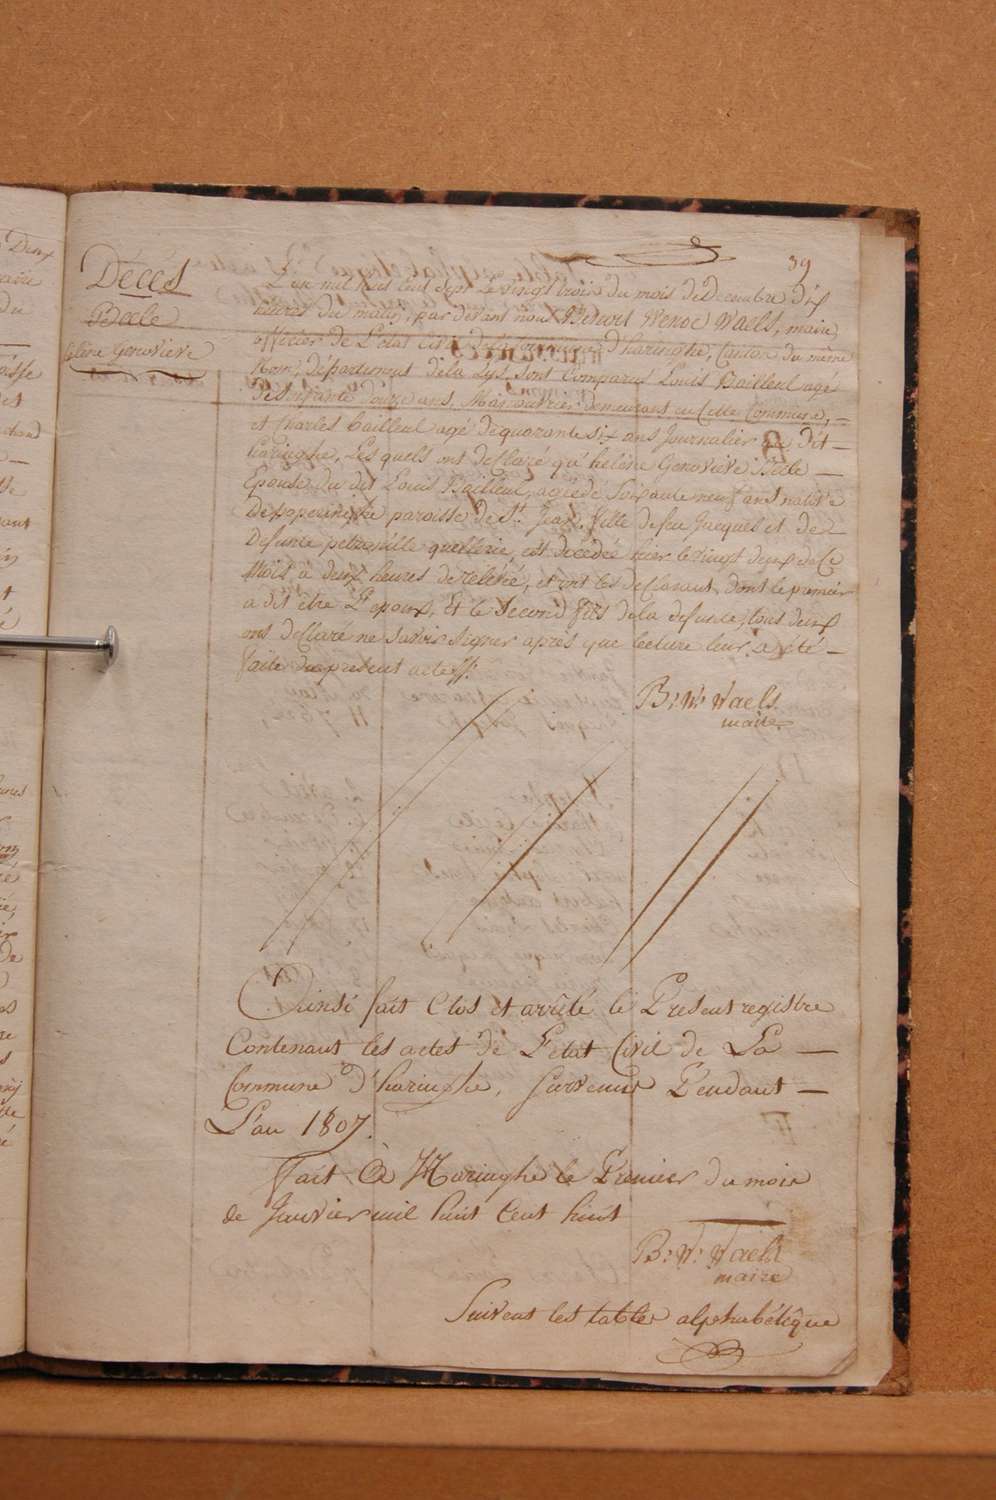 39
Décès
Bäcle
hélène Genovieve
L'an mil huit cent sept Le vingt trois du mois de Decembre dix
heures du matin, par devant nous Benoit Wenoc Waels, maire
officier de L'etat Civil de la Commune d'haringhe, Canton du même
Nom, Département de la Lys, sont Comparus Louis Bailleul agé
De Soixante Douze ans, Manouvrier demeurant en Cette Commune, =
et Charles bailleul agé de quarante six ans Journalier au dit —
haringhe, Les quels ont declaré qu'helène Genovieve Bäcle —
Epouse du dit Louis Bailleul, agée de Soixante neuf ans native
De poperinghe paroisse de St. Jean, fille de feu Jacques et de —
Defunte petronille quellerie, est décédée hier le vingt deux de Ce
Mois, à deux heures de relévé, et ont les declarants, dont le premier
a dit être L'epoux, Et le Second fils de la defunte, tous deux
ont declaré ne savoir signer après que lecture leur a été —
faite du present acte //.
B: W: Waels
maire
Ainsi fait Clos et arrêté le Present registre
Contenant les actes de L'etat Civil de La —
Commune d'haringhe, survenus Pendant —
L'an 1807.
fait à Haringhe le Premier du mois
de Janvier mil huit Cent huit
B: W: Waels
maire
Suivent les table alphabétique